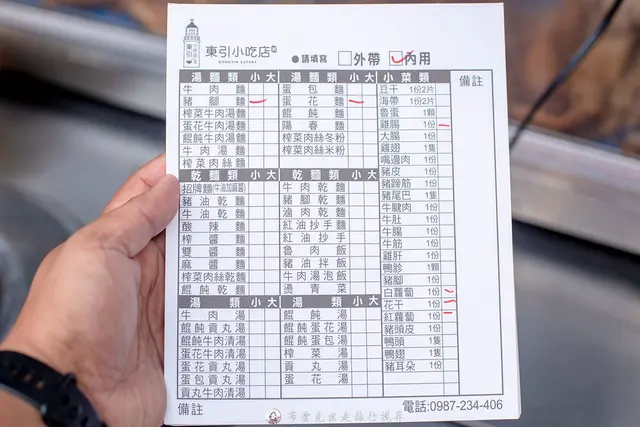 東引小吃店
DONGYIN EATERY
●請填寫 □外帶 ☑內用
湯麵類 小 大
牛肉麵
豬腳麵
榨菜牛肉湯麵
蛋花牛肉湯麵
餛飩牛肉湯麵
牛肉湯麵
榨菜肉絲麵
湯麵類 小 大
蛋包麵
蛋花麵
餛飩麵
陽春麵
榨菜肉絲冬粉
榨菜肉絲米粉
乾麵類 小 大
招牌麵(牛油加麻醬)
豬油乾麵
牛油乾麵
酸辣麵
榨醬麵
雙醬麵
麻醬麵
榨菜肉絲乾麵
餛飩乾麵
乾麵類 小 大
牛肉乾麵
豬腳乾麵
滷肉乾麵
紅油抄手麵
紅油抄手
魯肉飯
豬油拌飯
牛肉湯泡飯
燙青菜
湯類 小 大
牛肉湯
餛飩貢丸湯
餛飩牛肉清湯
蛋花牛肉清湯
蛋花貢丸湯
蛋包貢丸湯
貢丸牛肉清湯
湯類 小 大
餛飩湯
餛飩蛋花湯
餛飩蛋包湯
榨菜湯
貢丸湯
蛋花湯
小菜類
豆干 1份2片
海帶 1份2片
魯蛋 1顆
雞腸 1份
大腸 1份
雞翅 1隻
嘴邊肉 1份
豬皮 1份
豬蹄筋 1份
豬尾巴 1隻
牛腱肉 1份
牛肚 1份
牛腸 1份
牛筋 1份
雞肝 1份
鴨胗 1顆
豬腳 1份
白蘿蔔 1份
花干 1份
紅蘿蔔 1份
豬頭皮 1份
鴨頭 1隻
鴨翅 1隻
豬耳朵 1份
備註
備註
電話:0987-234-406